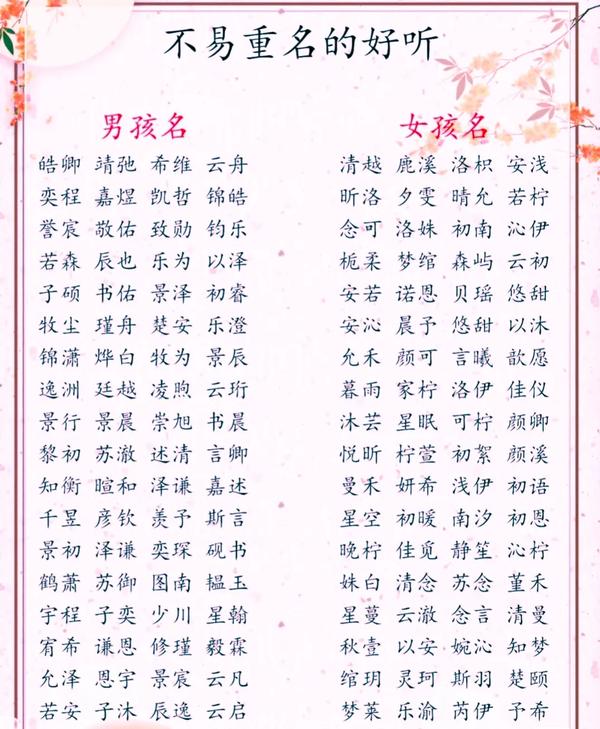 不易重名的好听
男孩名 女孩名
皓卿 靖弛 希维 云舟 清越 鹿溪 洛枳 安浅
奕程 嘉煜 凯哲 锦皓 昕洛 夕雯 晴允 若柠
誉宸 敬佑 致勋 钧乐 念可 洛姝 初南 沁伊
若森 辰也 乐为 以泽 栀柔 梦绾 森屿 云初
子硕 书佑 景泽 初睿 安若 诺恩 贝瑶 悠甜
牧尘 瑾舟 楚安 乐澄 安沁 晨予 悠甜 以沐
锦潇 烨白 牧为 景辰 允禾 颜可 言曦 歆愿
逸洲 廷越 凌煦 云珩 暮雨 家柠 洛伊 佳仪
景行 景晨 崇旭 书晨 沐芸 星眠 可柠 颜卿
黎初 苏澈 述清 言卿 悦昕 柠萱 初絮 颜溪
知衡 暄和 泽谦 嘉述 曼禾 妍希 浅伊 初语
千昱 彦钦 羡予 斯言 星空 初暖 南汐 初恩
景初 泽谦 奕琛 砚书 晚柠 佳觅 静笙 沁柠
鹤萧 苏御 图南 韫玉 姝白 清念 苏念 堇禾
宇程 子奕 少川 星翰 星蔓 云澈 念言 清曼
宥希 谦恩 修瑾 毅霖 秋壹 以安 婉沁 知梦
允泽 恩宇 景宸 云凡 绾玥 灵珂 斯羽 楚颐
若安 子沐 辰逸 云启 梦莱 乐渝 芮伊 予希